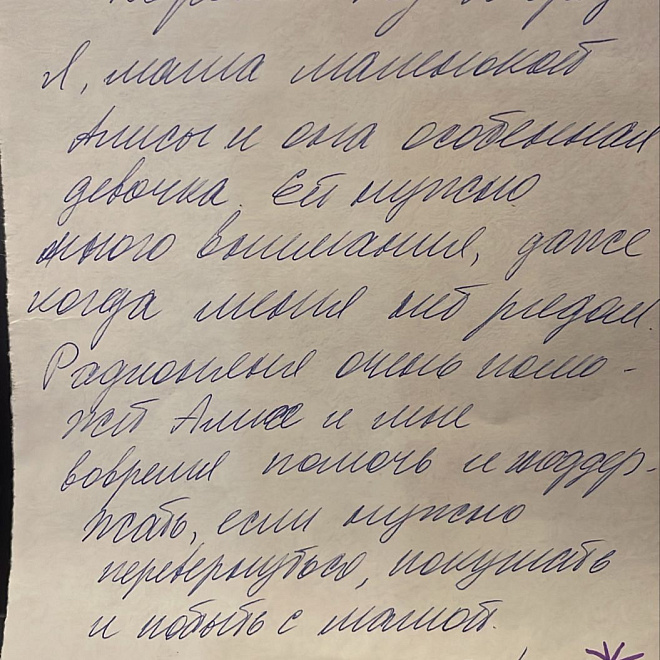 Я, мама маленькой
Алисы и она особенная
девочка. Ей нужно
много внимания, даже
когда меня нет рядом.
Радионяня очень помо-
жет Алисе и мне
вовремя помочь и поддер-
жать, если нужно
перевернуться, покушать
и побыть с мамой.